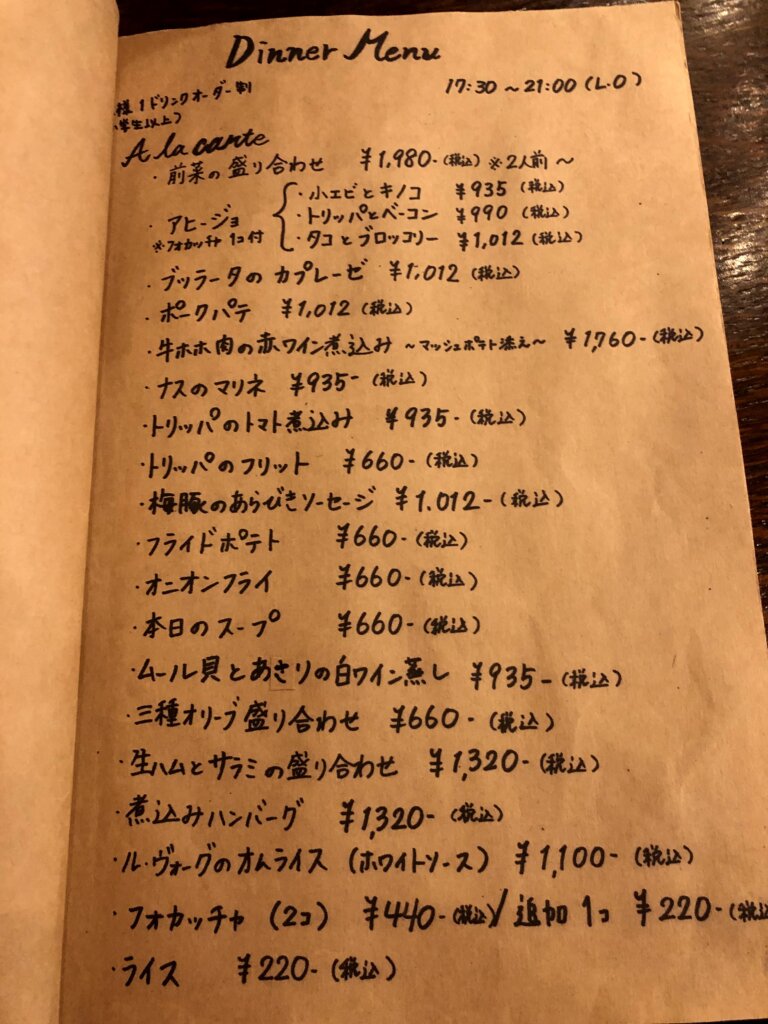 Dinner Menu
様1ドリンクオーダー制
学生以上)
17:30～21:00 (L.O)
A la carte
・前菜の盛り合わせ ¥1,980-(税込) ※2人前～
・アヒージョ
※フォカッチャ1コ付
・小エビとキノコ ¥935 (税込)
・トリッパとベーコン ¥990 (税込)
・タコとブロッコリー ¥1,012 (税込)
・ブッラータのカプレーゼ ¥1,012 (税込)
・ポークパテ ¥1,012 (税込)
・牛ホホ肉の赤ワイン煮込み ～マッシュポテト添え～ ¥1,760-(税込)
・ナスのマリネ ¥935-(税込)
・トリッパのトマト煮込み ¥935-(税込)
・トリッパのフリット ¥660-(税込)
・梅豚のあらびきソーセージ ¥1.012-(税込)
・フライドポテト ¥660-(税込)
・オニオンフライ ¥660-(税込)
・本日のスープ ¥660-(税込)
・ムール貝とあさりの白ワイン蒸し ¥935-(税込)
・三種オリーブ盛り合わせ ¥660-(税込)
・生ハムとサラミの盛り合わせ ¥1,320-(税込)
・煮込みハンバーグ ¥1,320-(税込)
・ル・ヴォーグのオムライス (ホワイトソース) ¥1,100-(税込)
・フォカッチャ (2コ) ¥440-(税込)/追加1コ ¥220-(税込
・ライス ¥220-(税込)